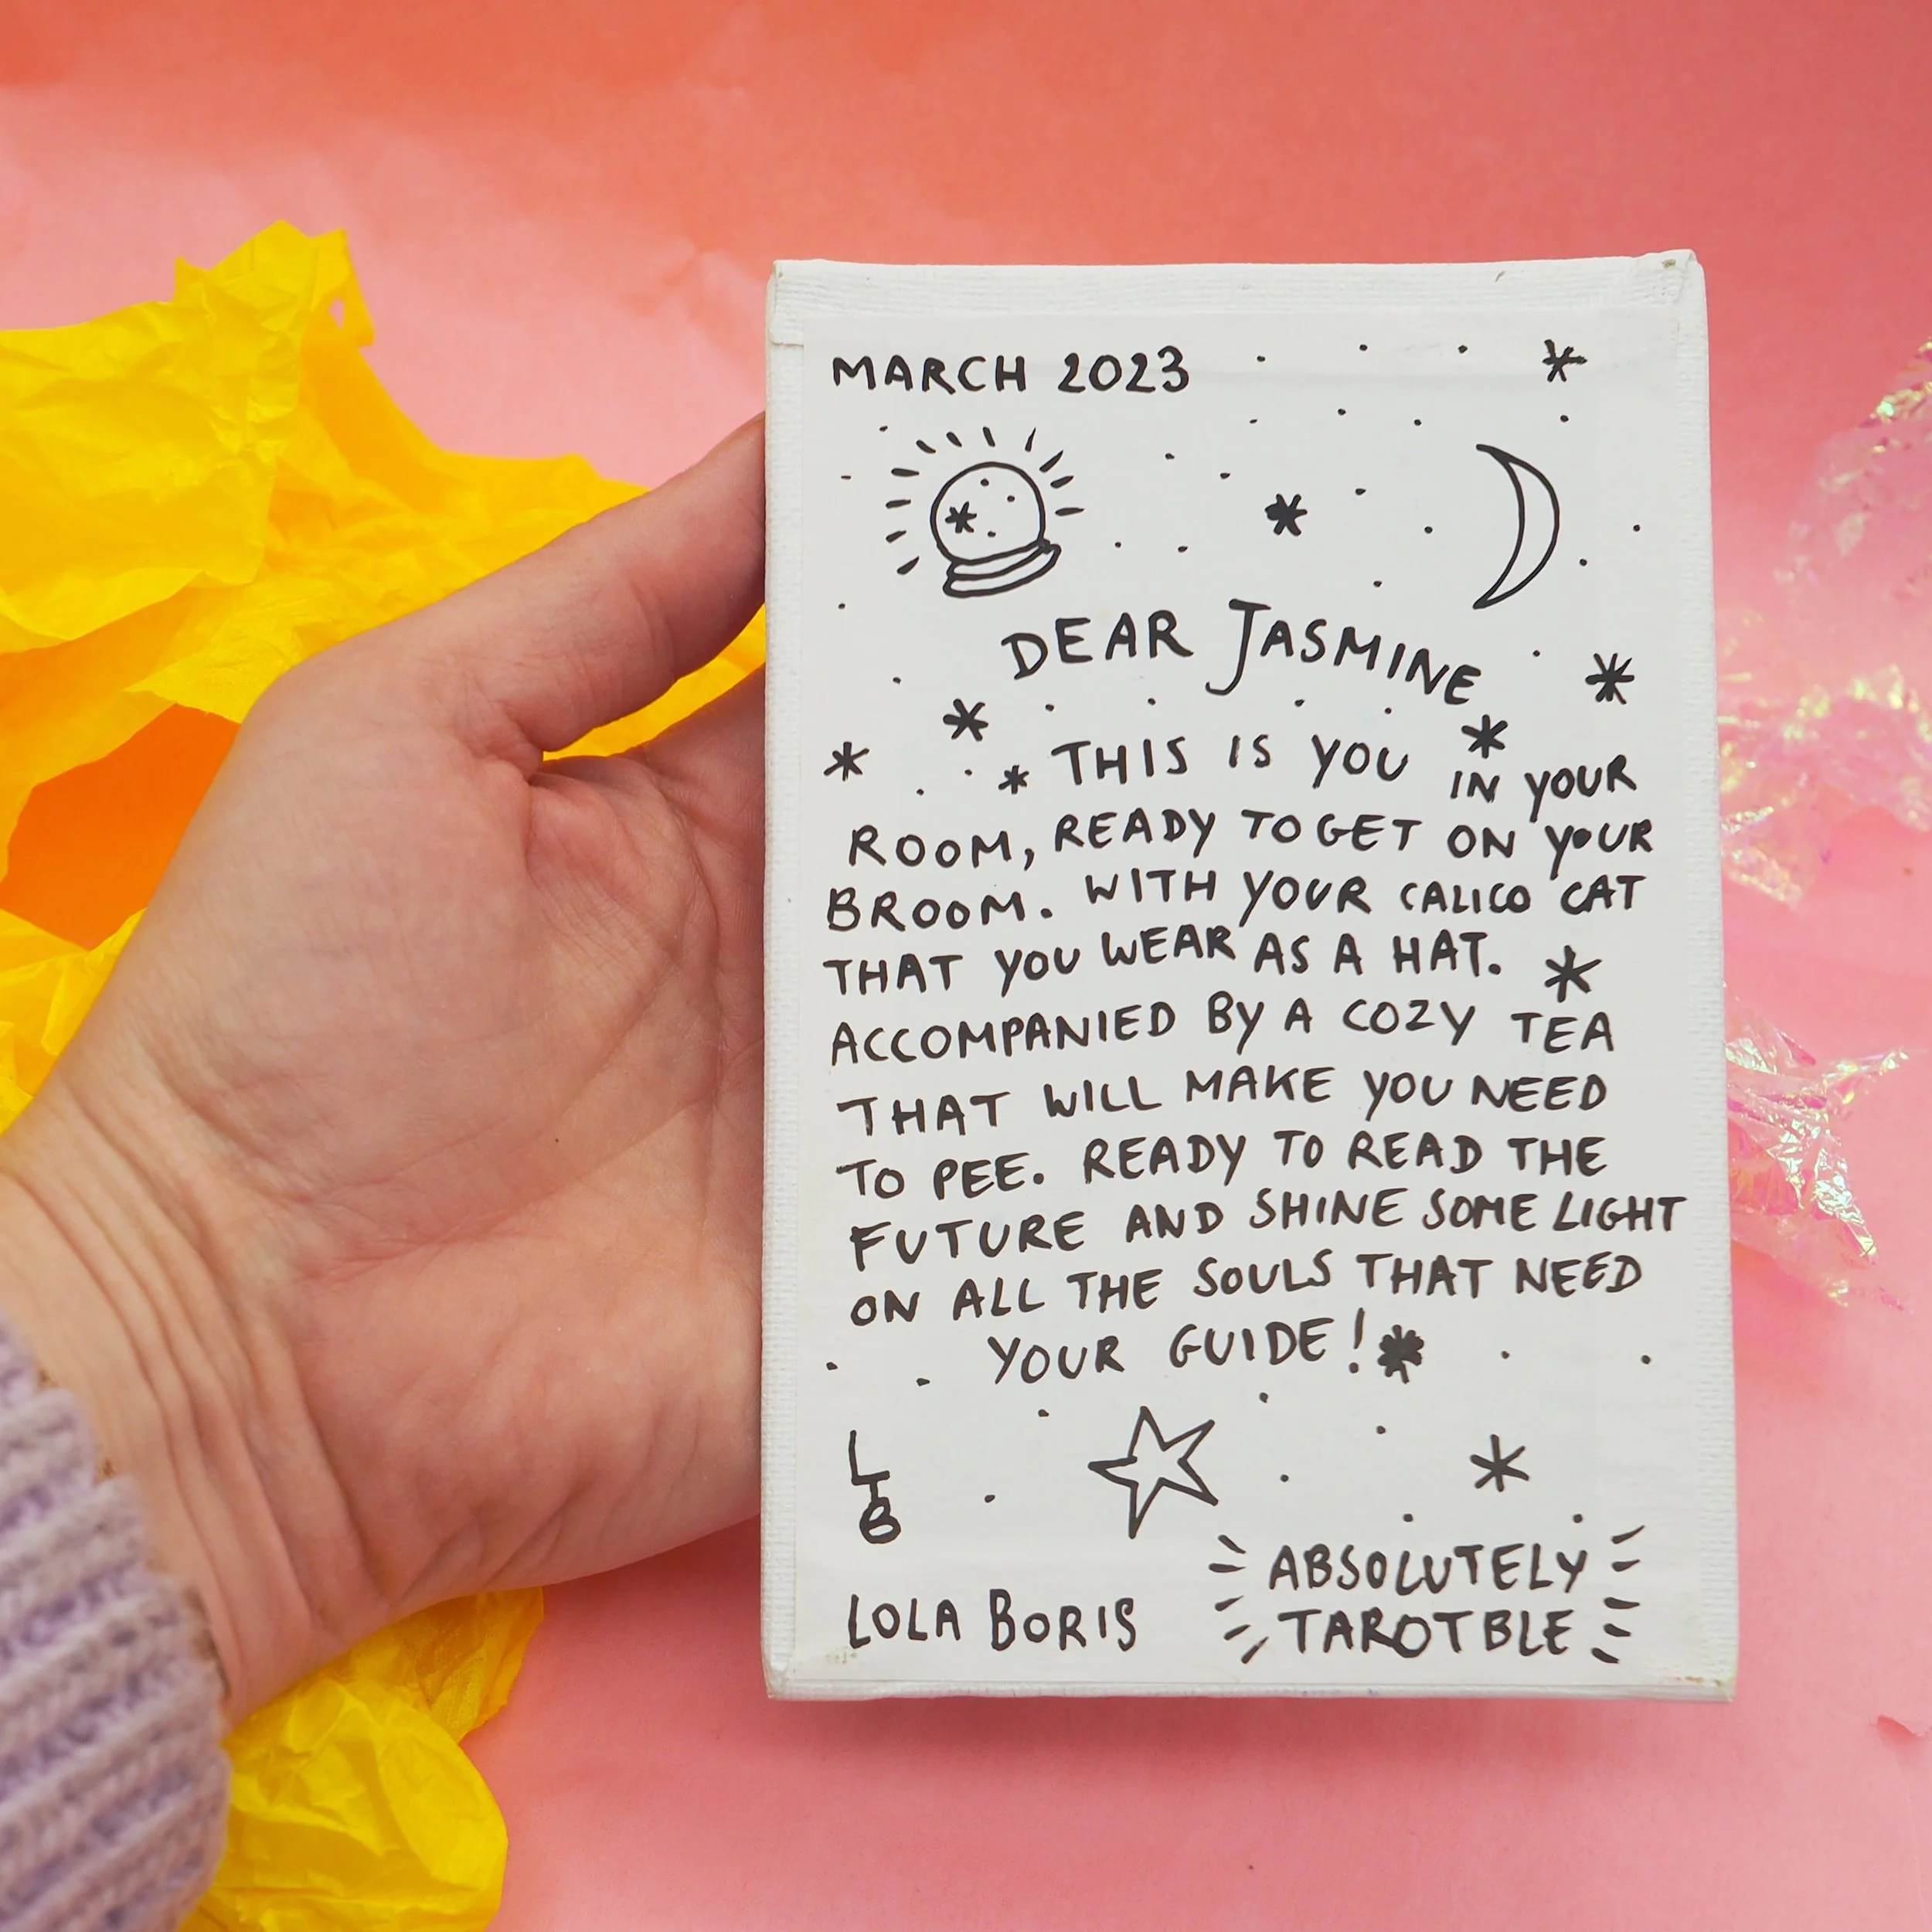 MARCH 2023
DEAR JASMINE
THIS IS YOU IN YOUR
ROOM, READY TO GET ON YOUR
BROOM. WITH YOUR CALICO CAT
THAT YOU WEAR AS A HAT.
ACCOMPANIED BY A COZY TEA
THAT WILL MAKE YOU NEED
TO PEE. READY TO READ THE
FUTURE AND SHINE SOME LIGHT
ON ALL THE SOULS THAT NEED
YOUR GUIDE!
LTB
LOLA BORIS
ABSOLUTELY
TAROTBLE